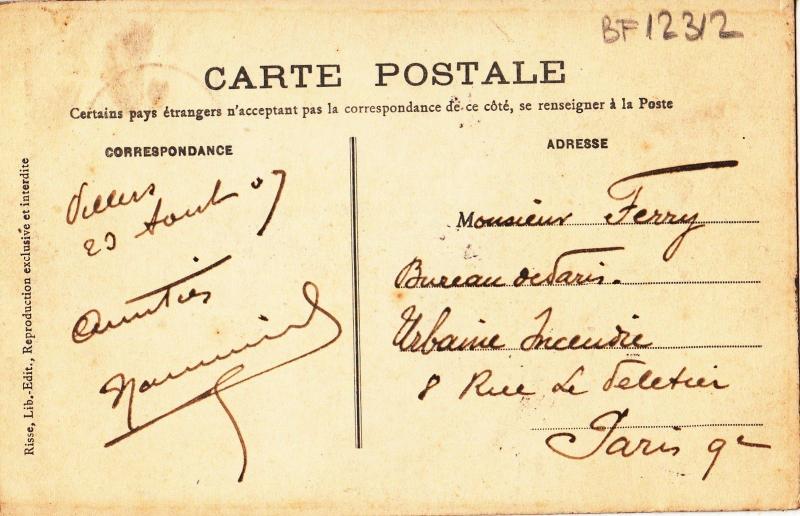 BF12312
CARTE POSTALE
Certains pays étrangers n'acceptant pas la correspondance de ce côté, se renseigner à la Poste
CORRESPONDANCE
Villers
23 Août 07
Amitiés
ADRESSE
Monsieur Ferry
Bureau de Paris.
Urbaine Incendie
8 Rue Le Peletier
Paris 9e
Risse, Lib.-Edit., Reproduction exclusive et interdite